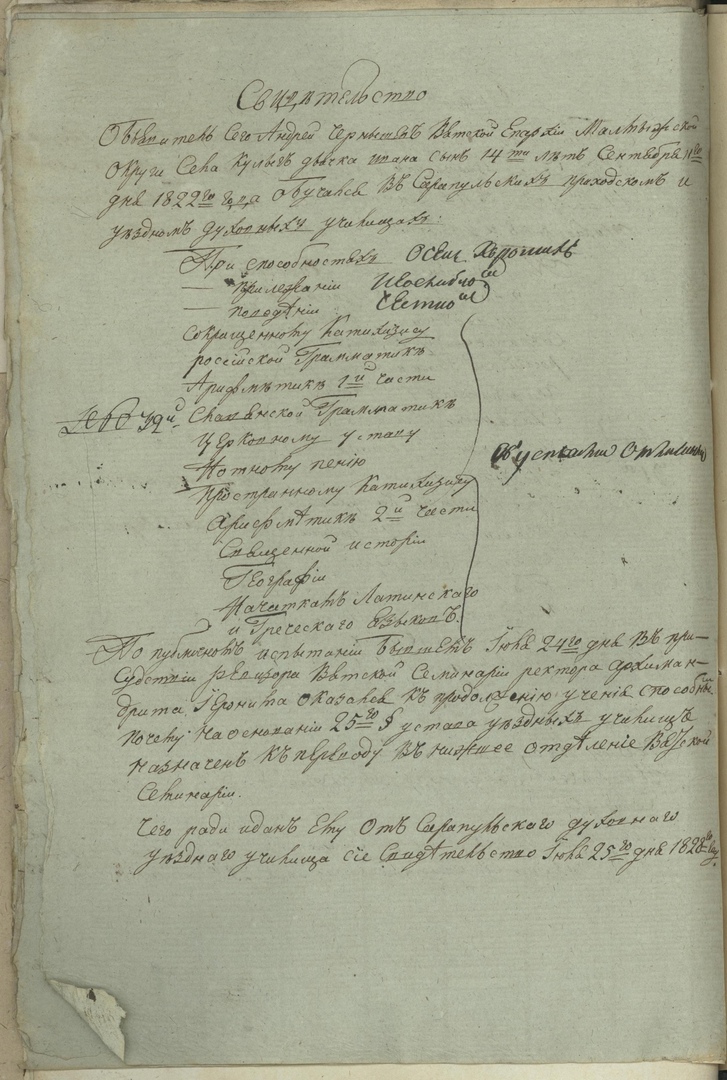 Свидѣтельство
Объявитель сего Андрей Чернышевъ Вятской Епархіи Малмыжской
округи Села дьяка Ивана сынъ 14ти лѣтъ Сентября 11го
дня 1822го года обучался въ Сарапульскихъ приходскомъ и
уѣздномъ духовныхъ училищахъ:
При способностяхъ очень хорошихъ
— прилежаніи
— поведѣніи честномъ
Сокращенному Катихизису
россійской Грамматикѣ
Арифмѣтикѣ 1й части
Славянской Грамматикѣ
Церковному уставу
Нотному пѣнію
Съ успѣхами отличными
Пространному Катихизису
Арифмѣтикѣ 2й части
Священной исторіи
Географіи
Начаткамъ Латинскаго
и Греческаго языковъ.
По публичномъ испытаніи бывшемъ Іюля 24го дня въ при-
судствіи ревизора Вятской Семинаріи ректора архиман-
дрита оказался къ продолженію ученія способнымъ
почему на основаніи 25го § устава уѣздныхъ училищъ
назначенъ къ переводу въ нижшее отдѣленіе Вятской
Семинаріи.
Чего ради и данъ ему отъ Сарапульскаго духовнаго
уѣзднаго училища сіе Свидѣтельство Іюля 25го дня 1828го года